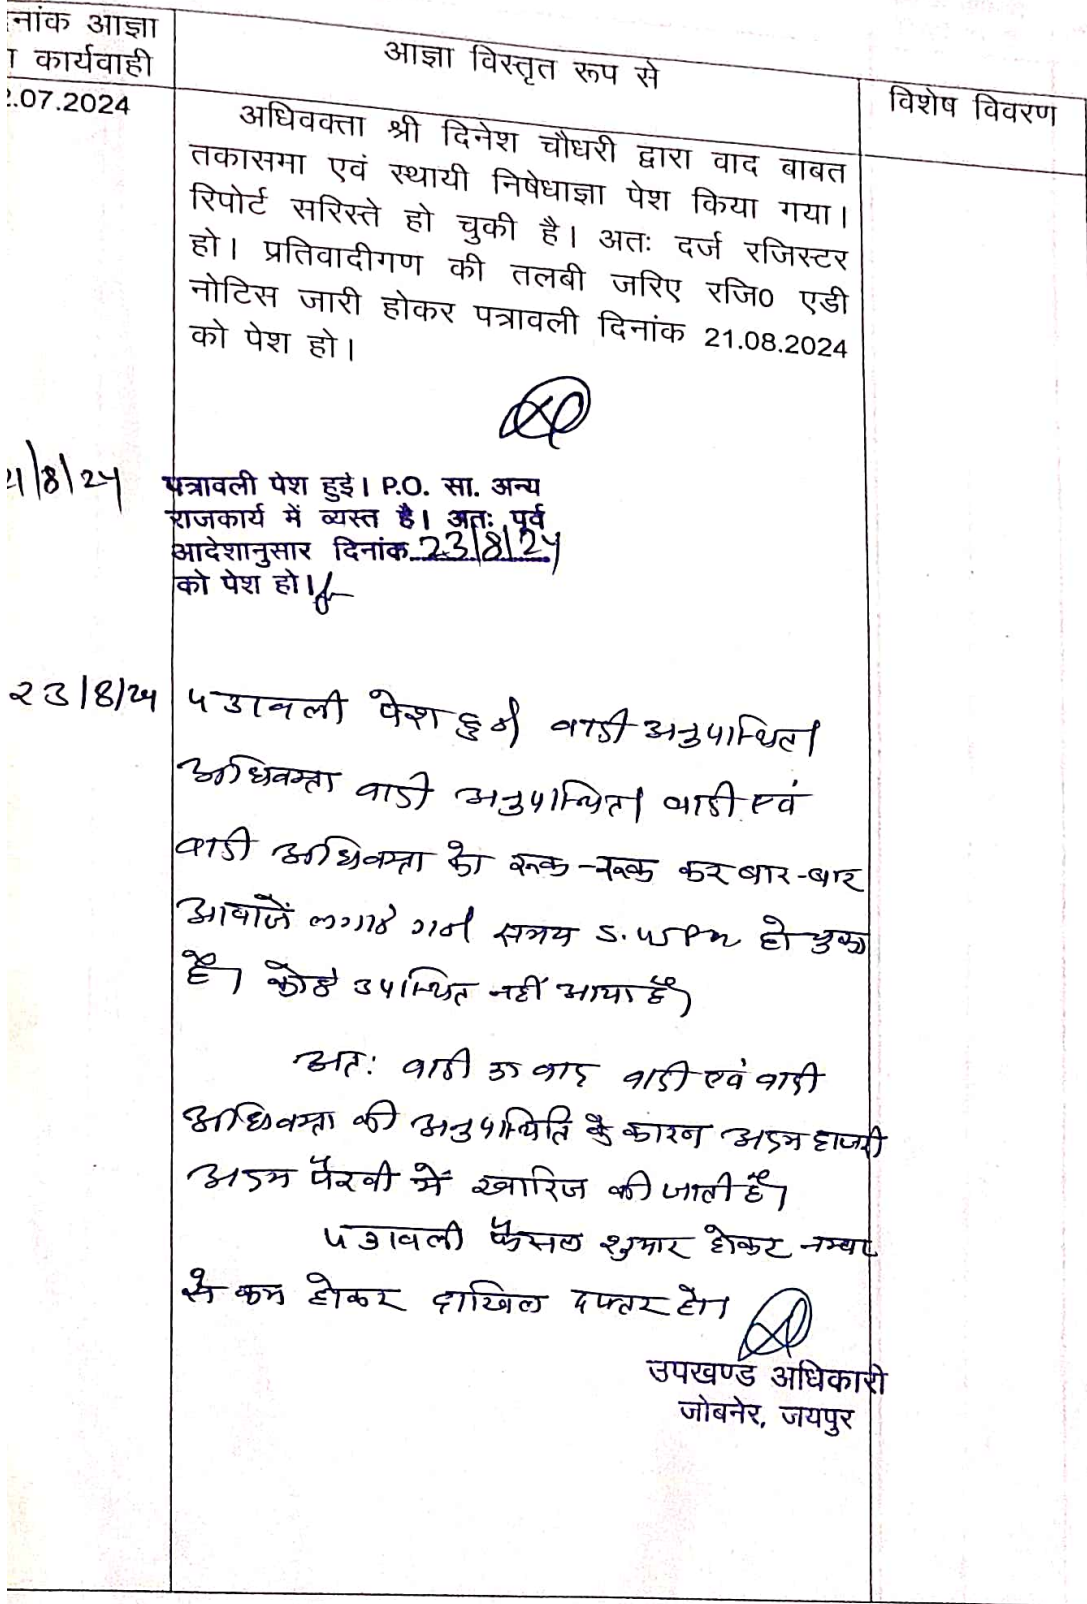 नांक आज्ञा
कार्यवाही
आज्ञा विस्तृत रूप से
विशेष विवरण
.07.2024
अधिवक्ता श्री दिनेश चौधरी द्वारा वाद बाबत
तकासमा एवं स्थायी निषेधाज्ञा पेश किया गया।
रिपोर्ट सरिस्ते हो चुकी है। अतः दर्ज रजिस्टर
हो। प्रतिवादीगण की तलबी जरिए रजि0 एडी
नोटिस जारी होकर पत्रावली दिनांक 21.08.2024
को पेश हो।
21/8/24
पत्रावली पेश हुई। P.O. सा. अन्य
राजकार्य में व्यस्त है। अतः पूर्व
आदेशानुसार दिनांक 23/8/24
को पेश हो।
23/8/24
पत्रावली पेश हुई। वादी अनुपस्थित।
अधिवक्ता वादी अनुपस्थित। वादी एवं
वादी अधिवक्ता को रूक-रूक कर बार-बार
आवाजें लगाई गई समय 5.45 PM हो चुका
है। कोई उपस्थित नहीं आया है।
अतः वादी का वाद वादी एवं वादी
अधिवक्ता की अनुपस्थिति के कारण अदम हाजरी
अदम पैरवी में खारिज की जाती है।
पत्रावली फैसल शुमार होकर नम्बर
से कम होकर दाखिल दफ्तर हो।
उपखण्ड अधिकारी
जोबनेर, जयपुर